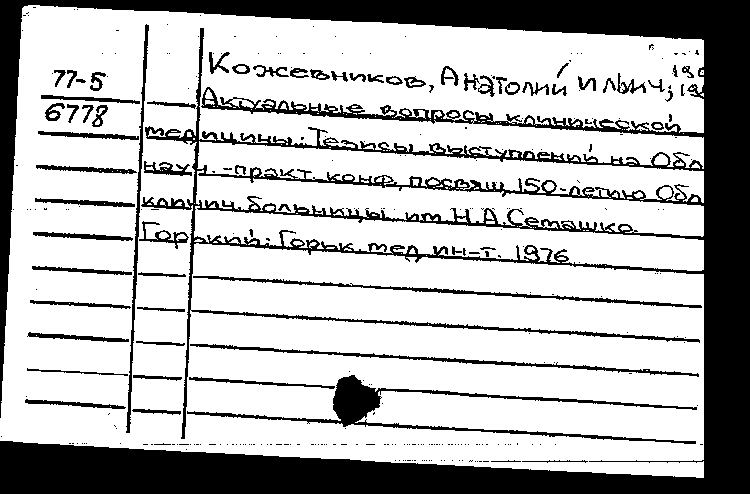 77-5
6778
Кожевников, Анатолий Ильич;
Актуальные вопросы клинической
медицины: Тезисы выступлений на Обл
науч.-практ. конф, посвящ, 150-летию Обл
клинич. больницы им. Н.А.Семашко.
Горький: Горьк. мед ин-т. 1976